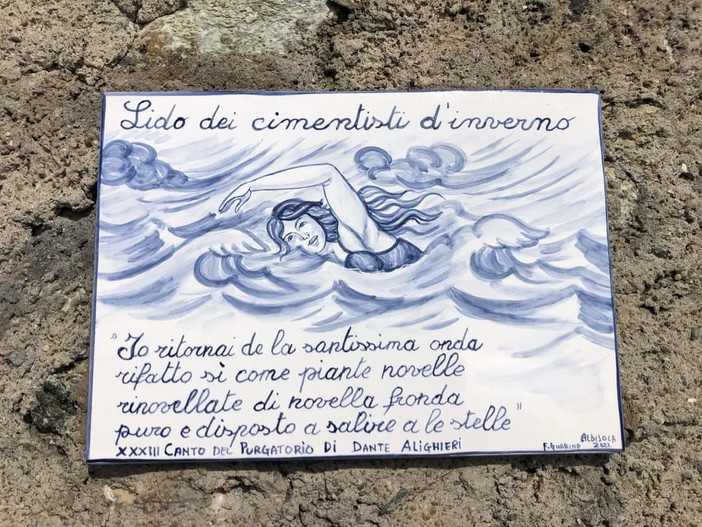 Lido dei cimentisti d'inverno
"Io ritornai de la santissima onda
rifatto sì come piante novelle
rinovellate di novella fronda
puro e disposto a salire a le stelle"
XXXIII CANTO DEL PURGATORIO DI DANTE ALIGHIERI
F. GUARINO
ALBISOLA
2022